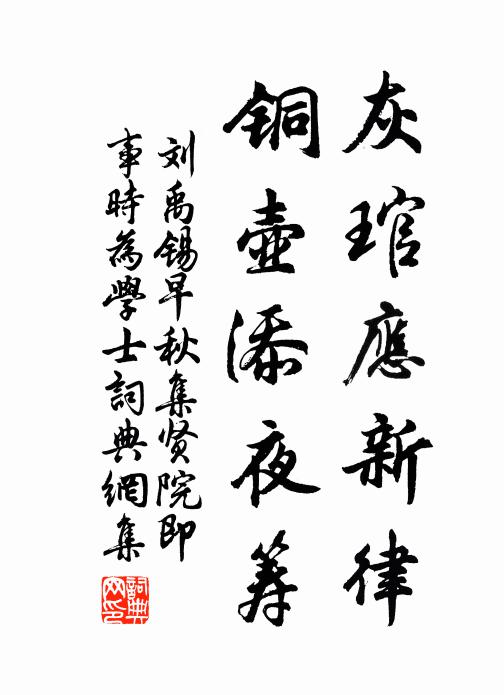 灰琯應新律
銅壺添夜籌
刘禹锡早秋集贤院即
事時為學士詞典網集
詞典网印